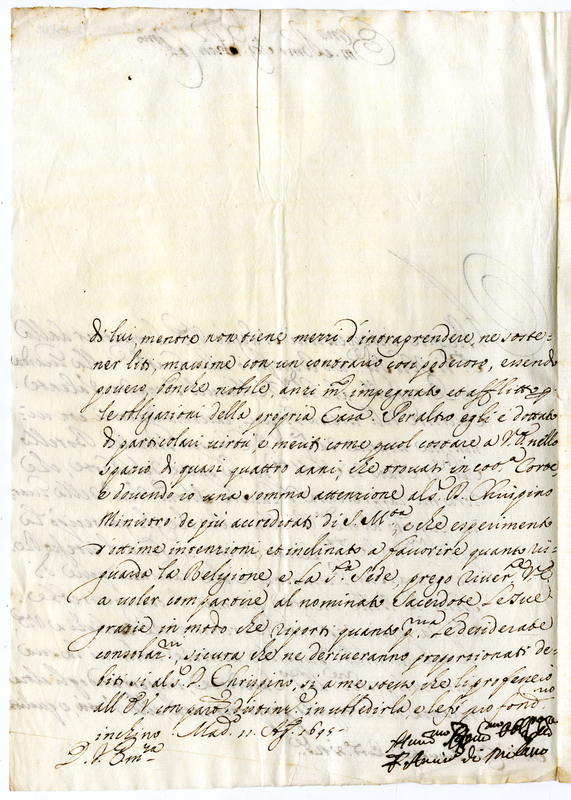 di lui, mentre non tiene mezzi d'intraprendere, ne soste-
ner liti, massime con un contrario così poderoso, essendo
povero, benche nobile, anzi m.to impegnato et afflitto p
le obligationi della propria Casa. Peraltro egli è dotato
di particolari virtù, e meriti come puol costare a V.E. nello
spazio di quasi quattro anni, che trovasi in cot.a Corte,
e dovendo io una somma attenzione al S. D. Chrispino
Ministro de più accreditati di S. M.tà, e che esperimento
d'ottime intenzioni, et inclinato a favorire quanto ri-
guarda la Religione, e La S.ta Sede, prego river.te V.E.
a voler compartire al nominato Sacerdote Le sue
grazie in modo che riporti quanto p.ma Le desiderate
consolaz.ni, sicura che ne deriveranno proporzionati de-
biti sì al S. D. Chrispino, sì a me stesso, che li professerò
all' E.V. con distinz.e in ubbidirla, e le fo prof.mo
inchino. Mad. 11. Ag.to 1695.
D. V. Em.za
Hum.mo
di Milano